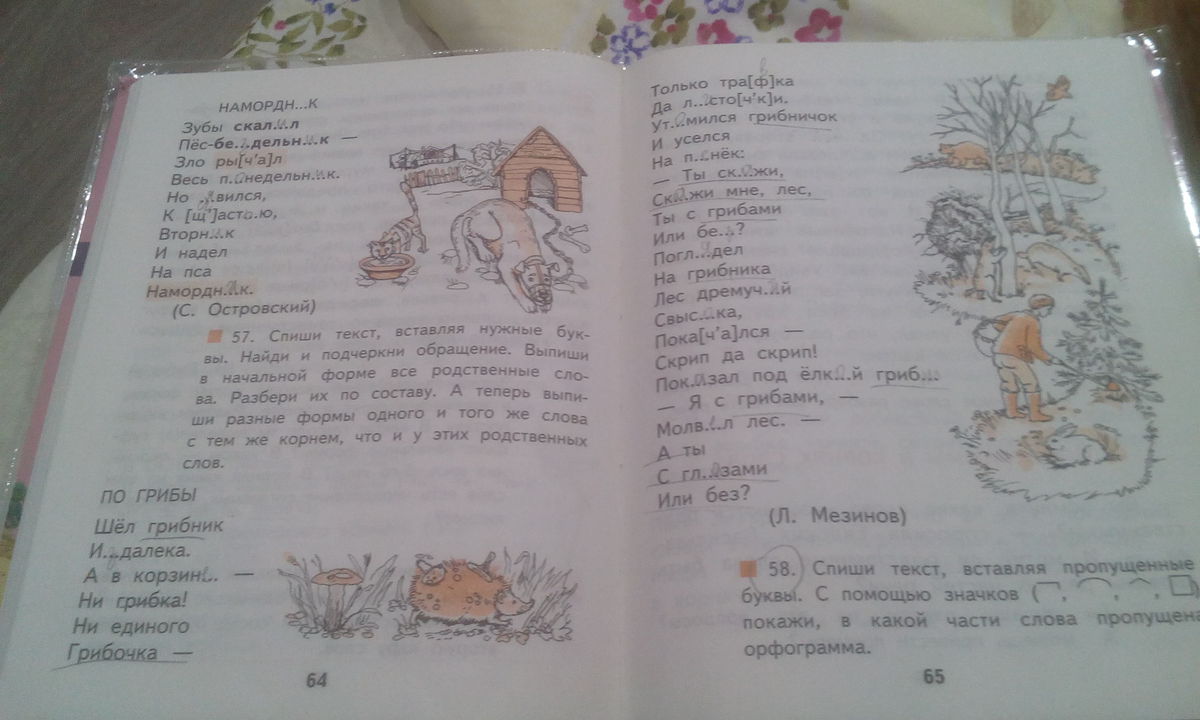 НАМОРДН...К
Зубы скал...л
Пёс-бе...дельн...к —
Зло ры[ч'а]л
Весь п...недельн...к.
Но ...вился,
К [щ']аст...ю,
Вторн...к
И надел
На пса
Намордн...к.
(С. Островский)
57. Спиши текст, вставляя нужные бук-
вы. Найди и подчеркни обращение. Выпиши
в начальной форме все родственные сло-
ва. Разбери их по составу. А теперь выпи-
ши разные формы одного и того же слова
с тем же корнем, что и у этих родственных
слов.
ПО ГРИБЫ
Шёл грибник
И...далека.
А в корзин... —
Ни грибка!
Ни единого
Грибочка —
64
Только тра[ф]ка
Да л...сто[ч'к]и.
Ут...мился грибничок
И уселся
На п...нёк:
— Ты ск...жи,
Ск...жи мне, лес,
Ты с грибами
Или бе...?
Погл...дел
На грибника
Лес дремуч...й
Свыс...ка,
Пока[ч'а]лся —
Скрип да скрип!
Пок...зал под ёлк...й гриб...
— Я с грибами, —
Молв...л лес. —
А ты
С гл...зами
Или без?
(Л. Мезинов)
58. Спиши текст, вставляя пропущенные
буквы. С помощью значков (¬, ⌒, ^, □)
покажи, в какой части слова пропущена
орфограмма.
65